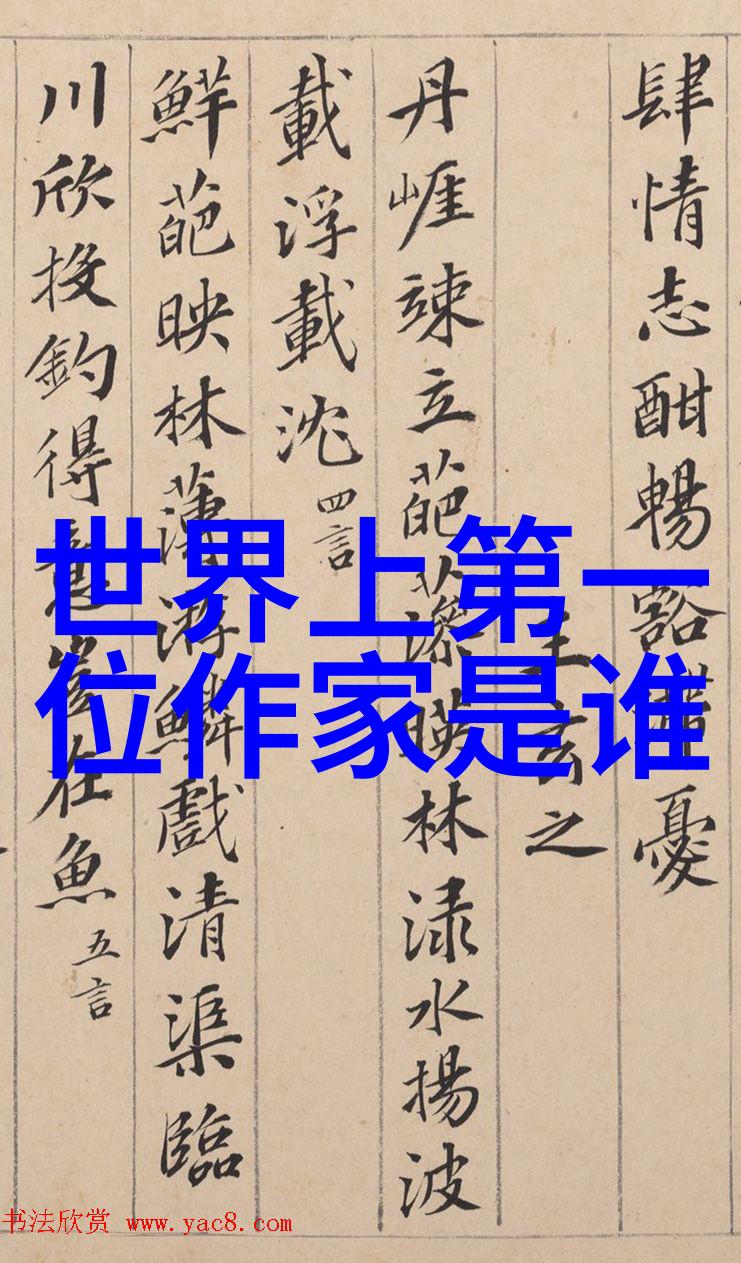 肆情志酣暢豁滯憂
王玄之
丹崕竦立葩藻暎林淥水揚波
載浮載沈 四言
鮮葩映林薄游鱗戲清渠臨
川欣投釣得意豈在魚 五言
世界上第一
位作家是谁
书法欣赏 www.yac8.com